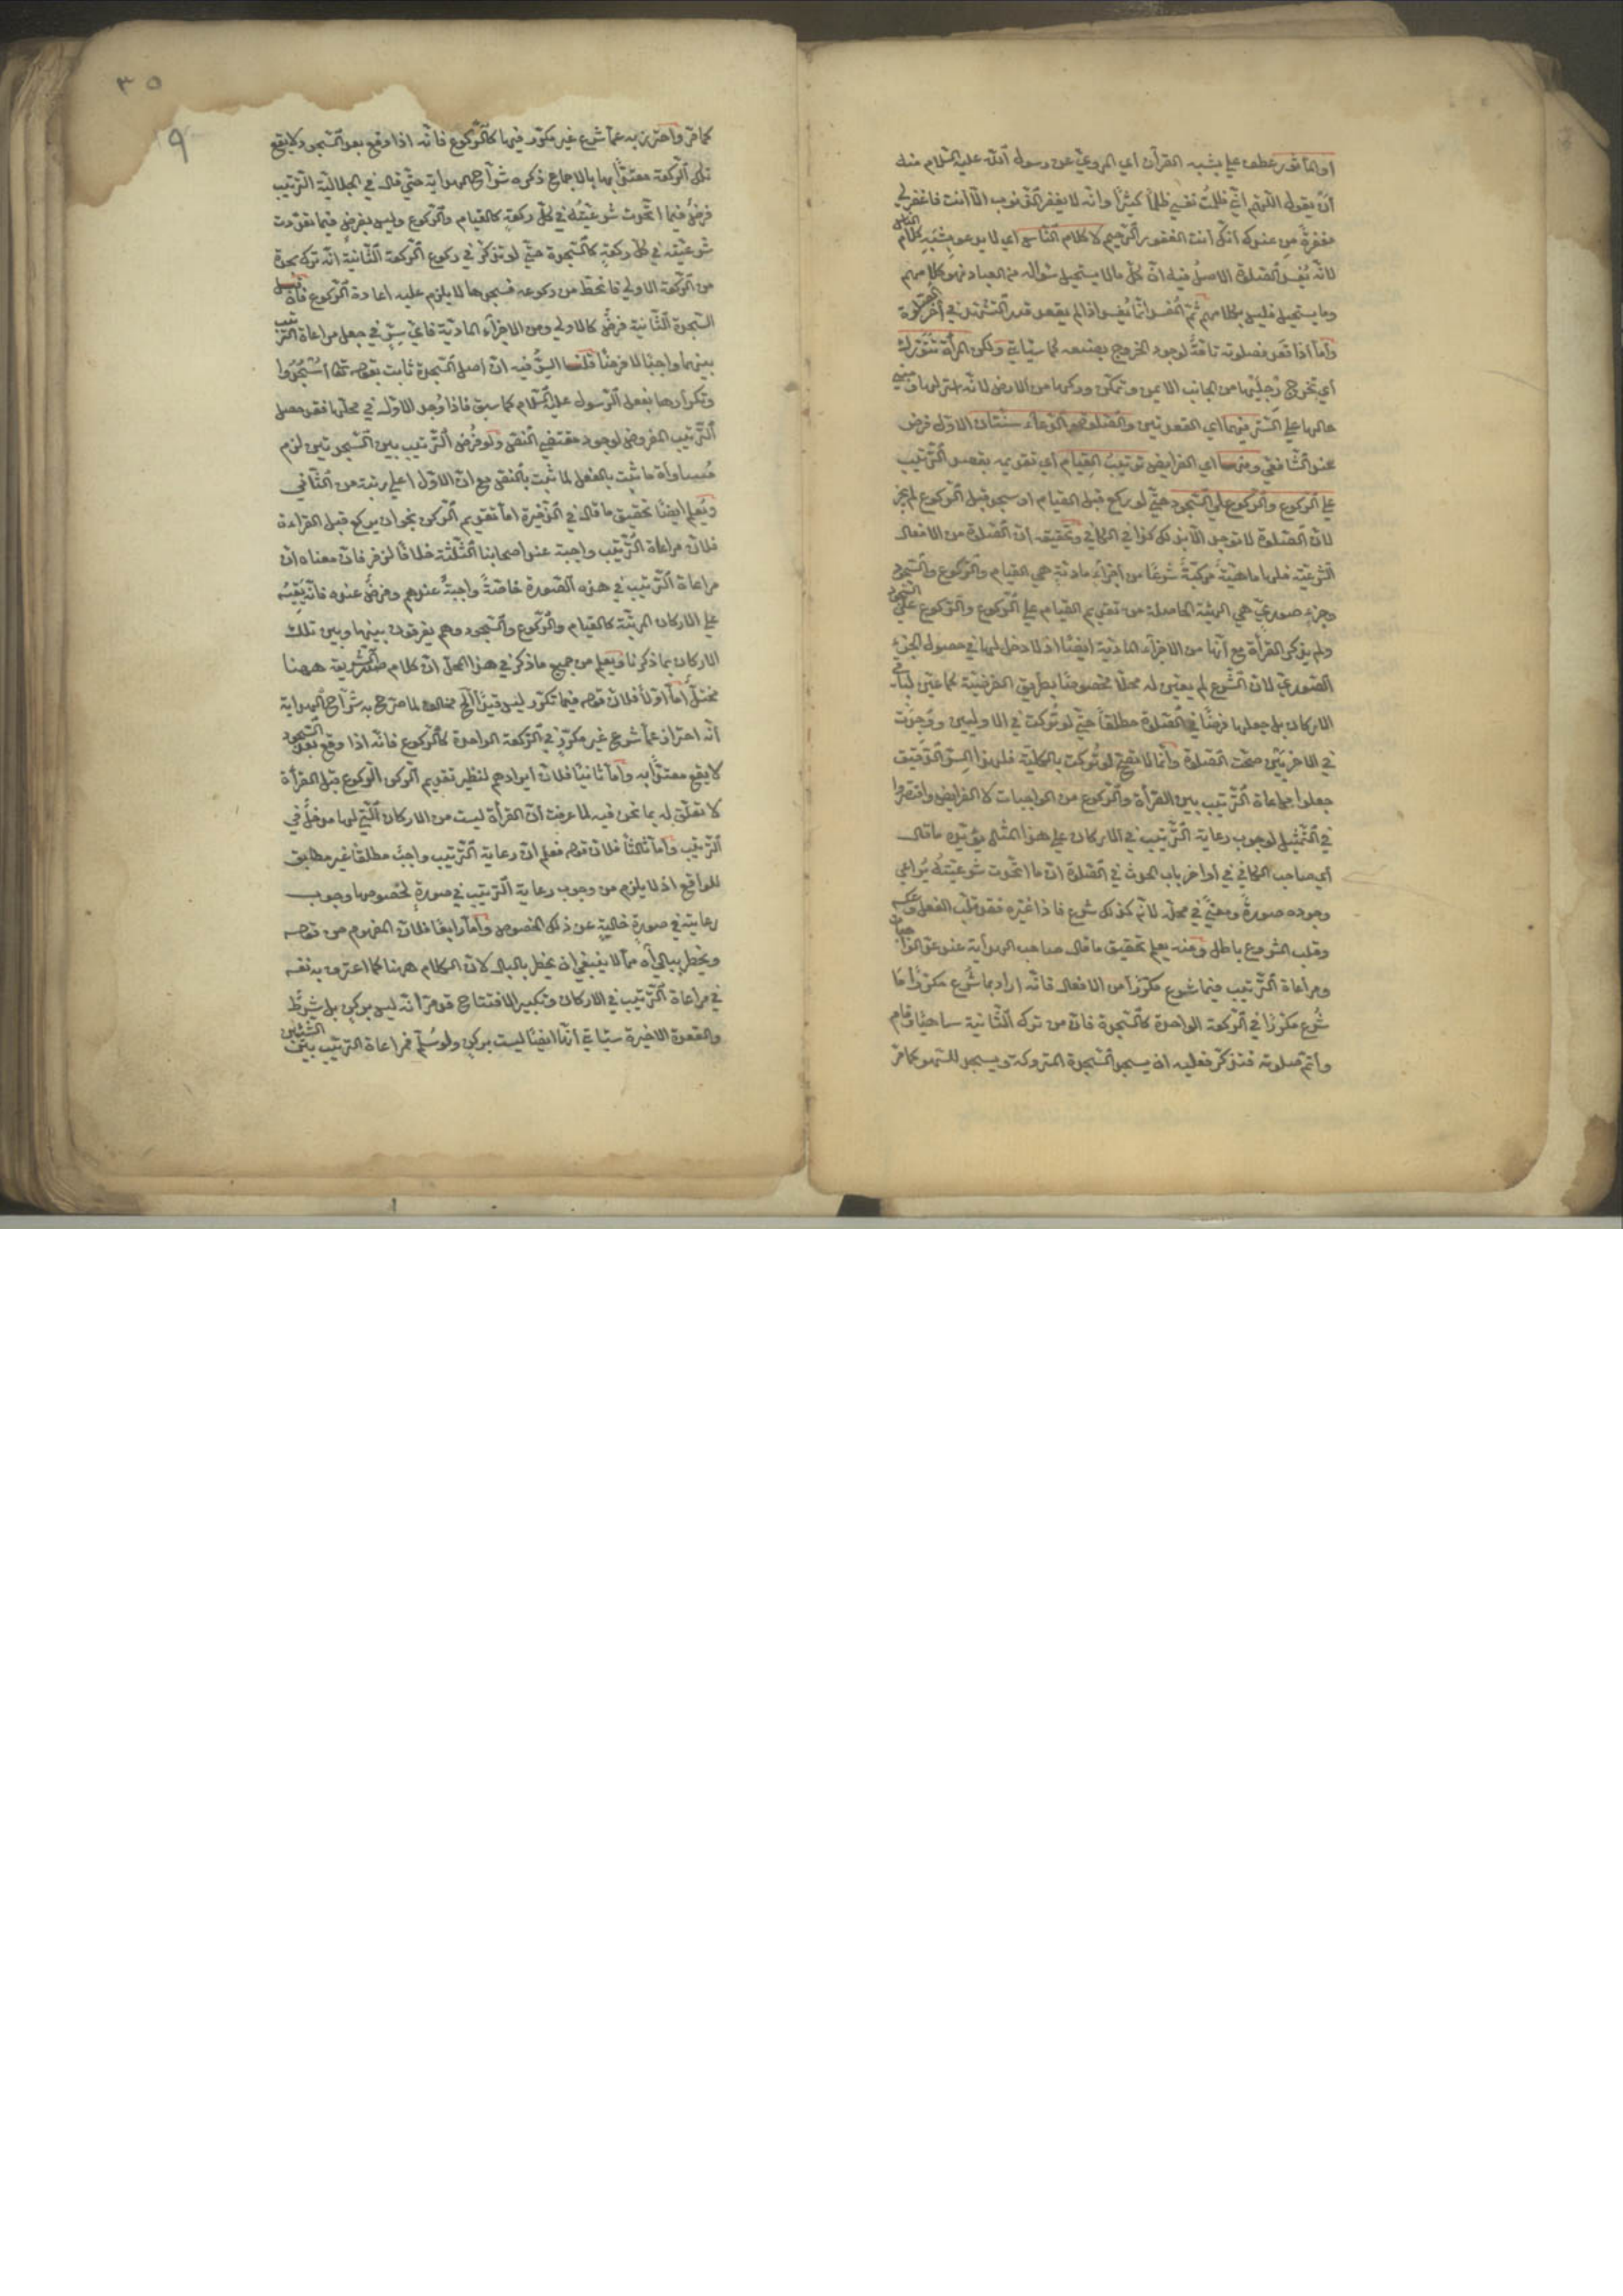 أو المأثور عطف علي يشبه القرآن أي المروي عن رسول الله عليه السلام منه
أن يقول اللهم اني ظلمت نفسي ظلماً كثيراً وانه لا يغفر الذنوب الا أنت فاغفر لي
مغفرة من عندك انك أنت الغفور الرحيم لا كلام الناس اي لا يدعو بشبه كلام الناس
لانه يفسد الصلوة الاصل فيه ان كل ما لا يستحيل سؤاله من العباد فهو كلامهم
وما يستحيل فليس بكلامهم ثم المفسد انما يفسد اذا لم يقعد قدر التشهد في آخر الصلوة
وأما اذا قعد فصلوته تامة لوجود الخروج بصنعه كما سيأتي ولكن المرأة تتورك
أي تخرج رجليها من الجانب الايمن وتمكن وركها من الارض لانه استر لها ومبني
حالها علي الستر فيهما اي القعدتين والصلوة والدعاء سنتان الاول فرض
عند الشافعي ومنها اي الفرايض ترتيب القيام أي تقديمه بقصد الترتيب
علي الركوع والركوع علي السجود حتي لو ركع قبل القيام او سجد قبل الركوع لم يجز
لان الصلوة لا توجد الا بذلك كذا في الكافي وتحقيقه ان الصلوة من الافعال
الشرعية فلها ماهية مركبة شرعا من أجزاء مادية هي القيام والركوع والسجود
وجزء صوري هي الهيئة الحاصلة من تقديم القيام علي الركوع والركوع علي السجود
ولم يذكر القرأة مع أنها من الاجزاء المادية ايضا اذ لا دخل لها في حصول الجزء
الصوري لان الشرع لم يعين له محلا مخصوصا بطريق الفرضية كما عين لباقي
الاركان بل جعلها فرضا في الصلوة مطلقاً حتي لو تركت في الاوليين ووجدت
في الاخريين صحت الصلوة وانما لا تصح لو تركت بالكلية فلهذا السر الدقيق
جعلوا مراعاة الترتيب بين القرأة والركوع من الواجبات لا الفرايض واقتصروا
في التمثيل لوجوب رعاية الترتيب في الاركان علي هذا المثال يؤيده ما قال
أي صاحب الكافي في أواخر باب الحدث في الصلوة ان ما اتحدت شرعيته يراعي
وجوده صورة ومعني في محله لانه كذلك شرع فاذا غيره فقد قلب الفعل وعكسه
وقلب المشروع باطل ومنه يعلم تحقيق ما قال صاحب الهداية عند عد الواجبات
ومراعاة الترتيب فيما شرع مكررا من الافعال فانه اراد بما شرع مكررا ما
شرع مكررا في الركعة الواحدة كالسجدة فان من ترك الثانية ساهيا وقام
وأتم صلوته فتذكر فعليه ان يسجد السجدة المتروكة ويسجد للسهو كما مر
٣٥
٩
كما مر واحترز به عما شرع غير مكرر فيها كالركوع فانه اذا وقع بعد السجود لا يقع
تلك الركعة معتدا بها بالاجماع ذكره شراح الهداية حتي قال في الجلالية الترتيب
فرض فيما اتحدت شرعيته في كل ركعة كالقيام والركوع وليس بفرض فيما تعددت
شرعيته في كل ركعة كالسجدة حتي لو تذكر في ركوع الركعة الثانية انه ترك سجدة
من الركعة الاولي فانحط من ركوعه فسجدها لا يلزم عليه اعادة الركوع فان قيل
السجدة الثانية فرض كالاولي ومن الاجزاء المادية فاي سر في جعل مراعاة الترتيب
بينهما واجبا لا فرضا قلنا السر فيه ان اصل السجدة ثابت بقوله تعالى اسجدوا
وتكرارها بفعل الرسول عليه السلام كما سبق فاذا وجد الاول في محلها فقد حصل
الترتيب المفروض لوجود مقتضي النص ولو فرض الترتيب بين السجدتين لزم
مساواة ما ثبت بالفعل لما ثبت بالنص مع ان الاول اعلي رتبة من الثاني
ويعلم ايضا تحقيق ما قال في الذخيرة اما تقديم الركن نحو ان يركع قبل القراءة
فلان مراعاة الترتيب واجبة عند اصحابنا الثلثة خلافا لزفر فان معناه ان
مراعاة الترتيب في هذه الصورة خاصة واجبة عندهم وفرض عنده فانه يقيسه
علي الاركان المرتبة كالقيام والركوع والسجود وهم يفرقون بينها وبين تلك
الاركان بما ذكرنا ويعلم من جميع ما ذكر في هذا المحل ان كلام صدر الشريعة ههنا
مختل أما أولا فلان قوله فيما تكرر ليس قيدا الخ مخالف لما صرح به شراح الهداية
أنه احتراز عما شرع غير مكرر في الركعة الواحدة كالركوع فانه اذا وقع بعد السجود
لا يقع معتدا به واما ثانيا فلان ايرادهم لنظير تقديم الركن الركوع قبل القرأة
لا تعلق له بما نحن فيه لما عرفت أن القرأة ليست من الاركان التي لها مدخل في
الترتيب وأما ثالثا فلان قوله فعلم ان رعاية الترتيب واجب مطلقا غير مطابق
للواقع اذ لا يلزم من وجوب رعاية الترتيب في صورة لخصوصها وجوب
رعايته في صورة خالية عن ذلك الخصوص وأما رابعا فلان المفهوم من قوله
ويخطر ببالي أه مما لا ينبغي ان يخطر بالبال لان الكلام ههنا كما اعترف به نفسه
في مراعاة الترتيب في الاركان وتكبير الافتتاح قد مر أنه ليس بركن بل شرط
والقعدة الاخيرة سيأتي أنها ايضا ليست بركن ولو سلم فمراعاة الترتيب بين الشيئين